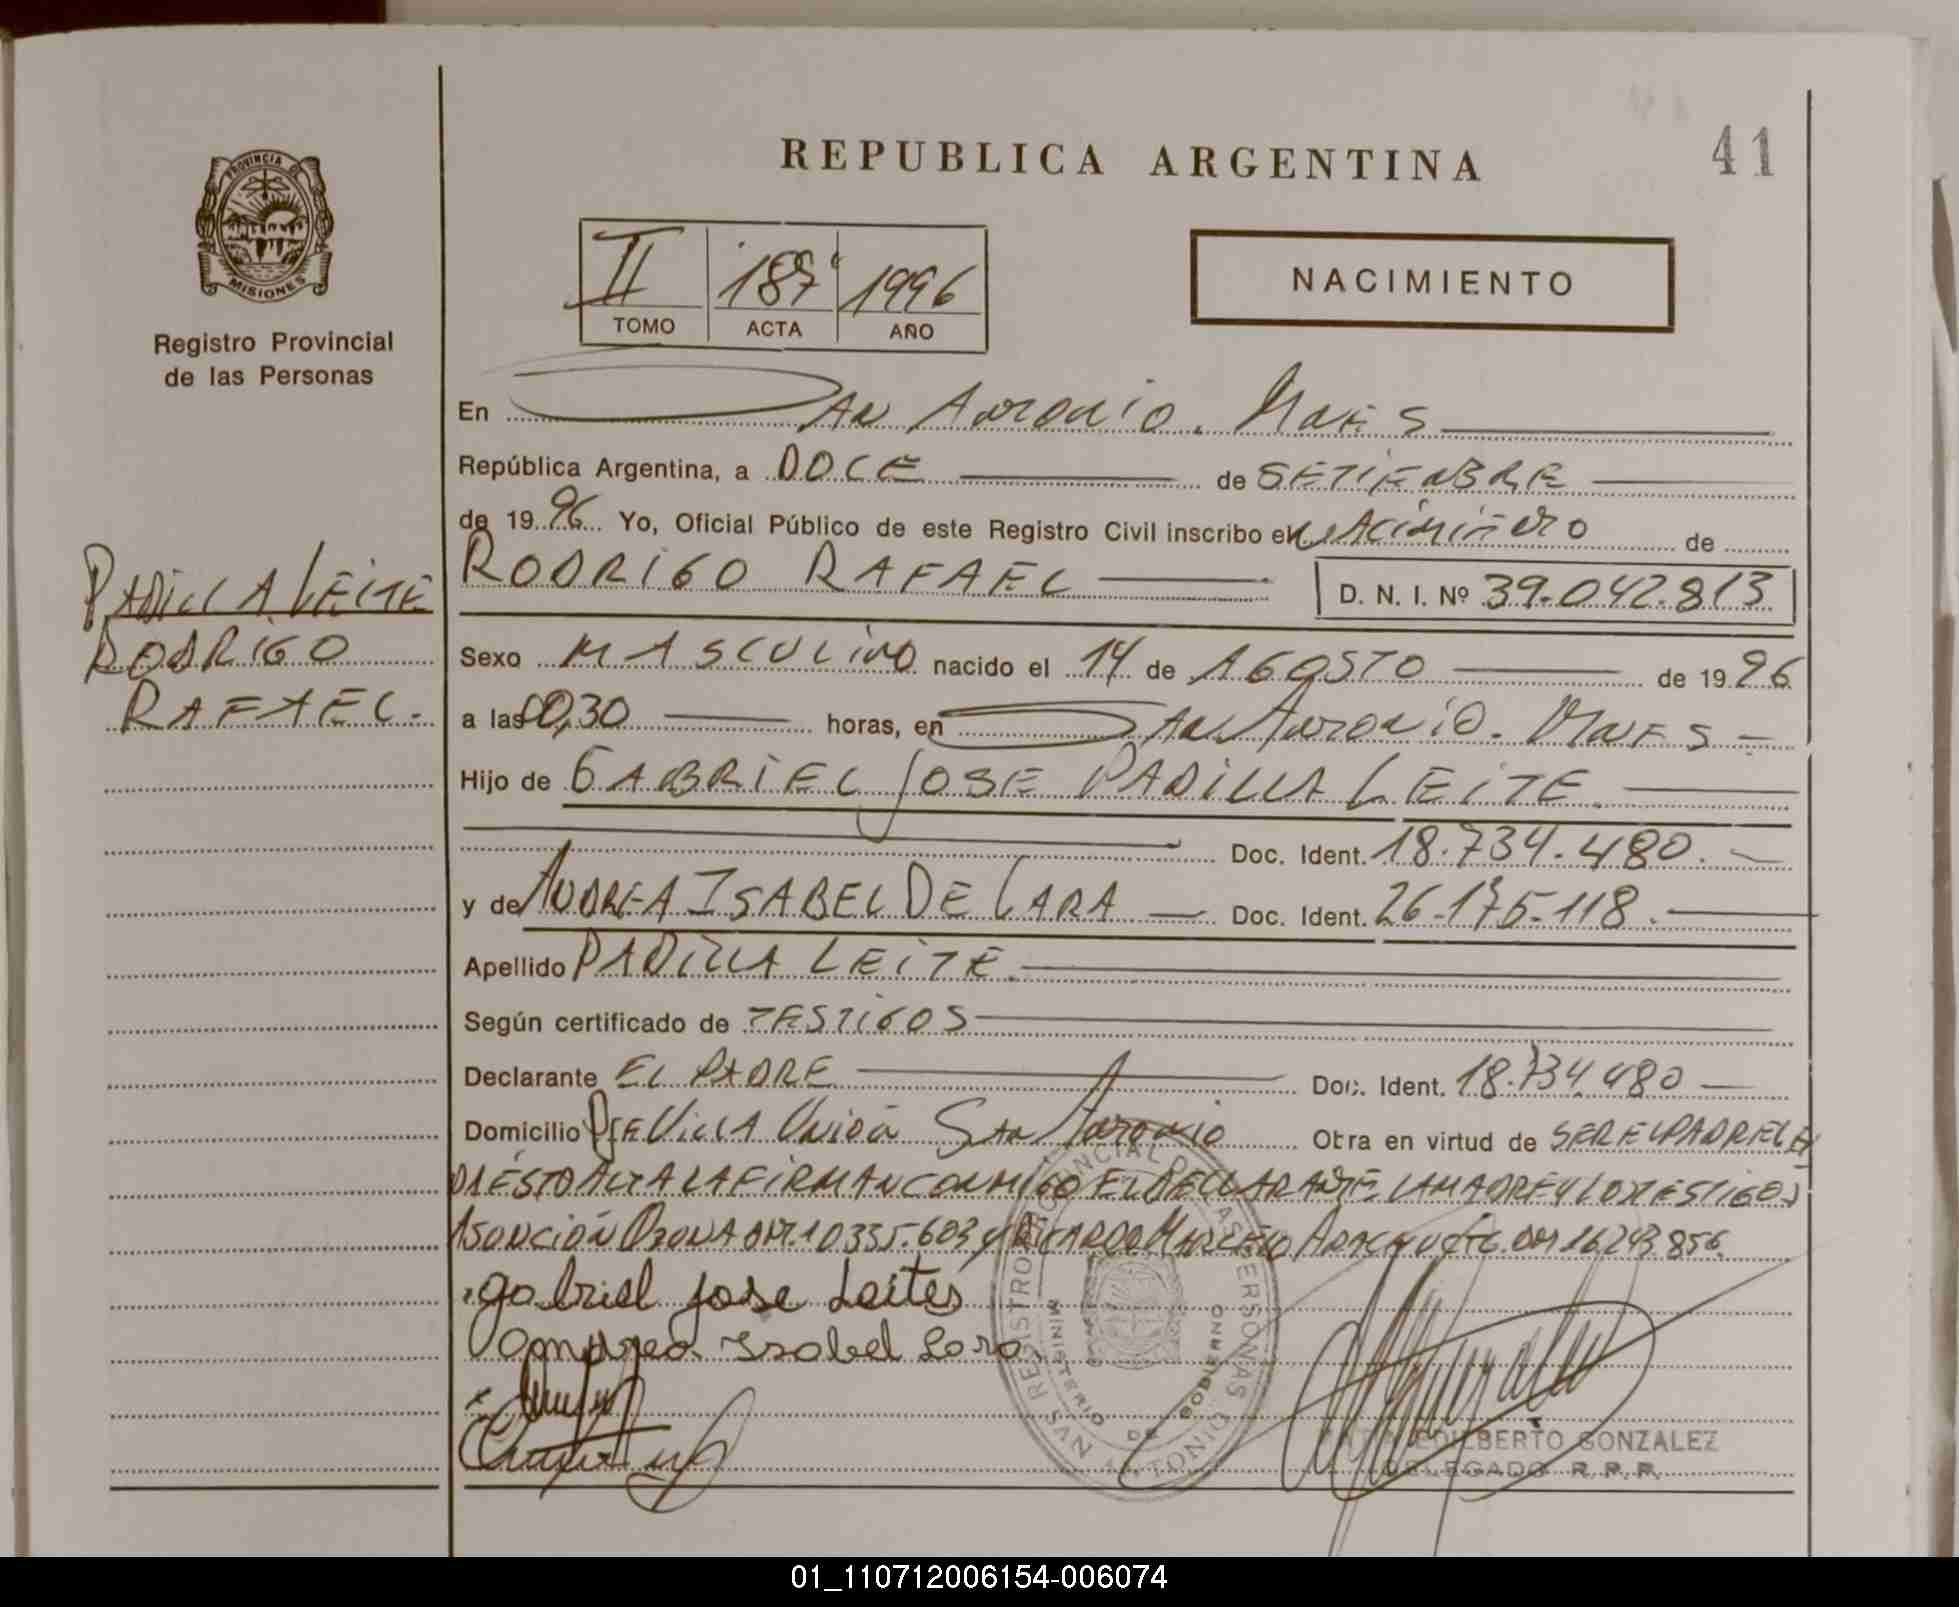 REPUBLICA ARGENTINA
41
PROVINCIA DE
MISIONES
Registro Provincial
de las Personas
II 187 1996
TOMO ACTA AÑO
NACIMIENTO
En SAN ANTONIO. MNES
República Argentina, a DOCE de SETIEMBRE
de 1996 Yo, Oficial Público de este Registro Civil inscribo el NACIMIENTO de
RODRIGO RAFAEL D. N. I. Nº 39.042.813
PADILLA LEITE
RODRIGO
RAFAEL.
Sexo MASCULINO nacido el 14 de AGOSTO de 1996
a las 00,30 horas, en SAN ANTONIO. MNES
Hijo de GABRIEL JOSE PADILLA LEITE.
Doc. Ident. 18.734.480.
y de ANDREA ISABEL DE LARA Doc. Ident. 26.175.118.
Apellido PADILLA LEITE.
Según certificado de TESTIGOS
Declarante EL PADRE Doc. Ident. 18.734.480
Domicilio PJE VILLA UNION SAN ANTONIO Otra en virtud de SER EL PADRE LEI
DA ESTO ACTA LA FIRMAN CONMIGO EL DECLARANTE, LA MADRE Y LOS TESTIGOS
ASUNCIÓN 10.335.603 y RICARDO MARCELO DNI 16.243.856.
gabriel jose Leites
Isabel Lara
REGISTRO PROVINCIAL DE LAS PERSONAS
MINISTERIO DE GOBIERNO
SAN ANTONIO
EDILBERTO GONZALEZ
DELEGADO R. P. P.
01_110712006154-006074